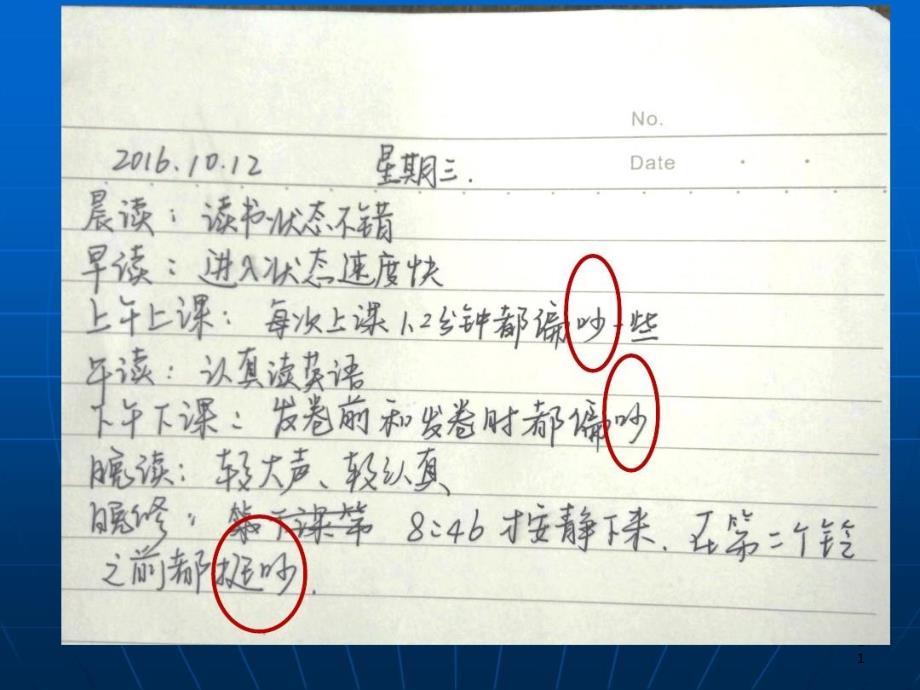 No.
2016.10.12 星期三. Date
晨读：读书状态不错
早读：进入状态速度快
上午上课：每次上课1.2分钟都偏吵一些
午读：认真读英语
下午下课：发卷前和发卷时都偏吵
晚读：较大声、较认真
晚修：第下课第 8:46才安静下来.在第二个铃
之前都挺吵.
1